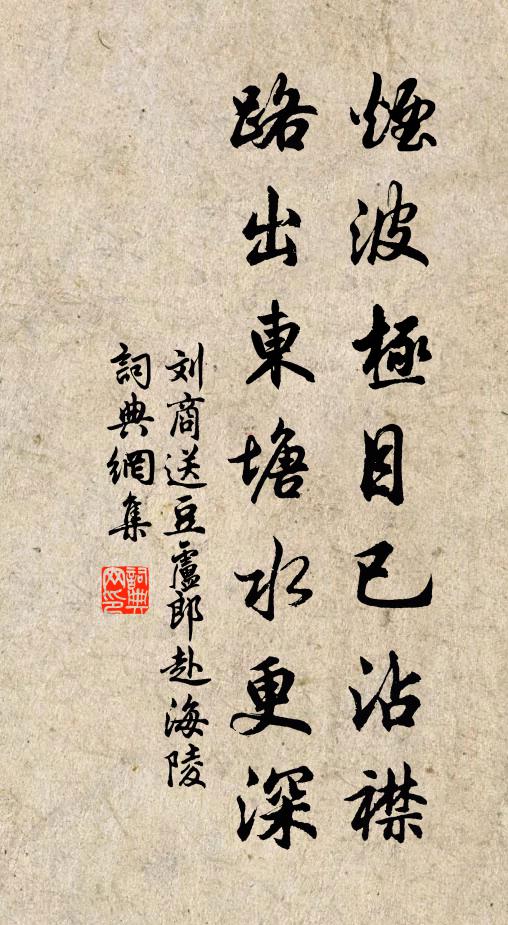 煙波極目已沾襟
路出東塘水更深
刘商送豆盧郎赴海陵
詞典網集
詞典网印